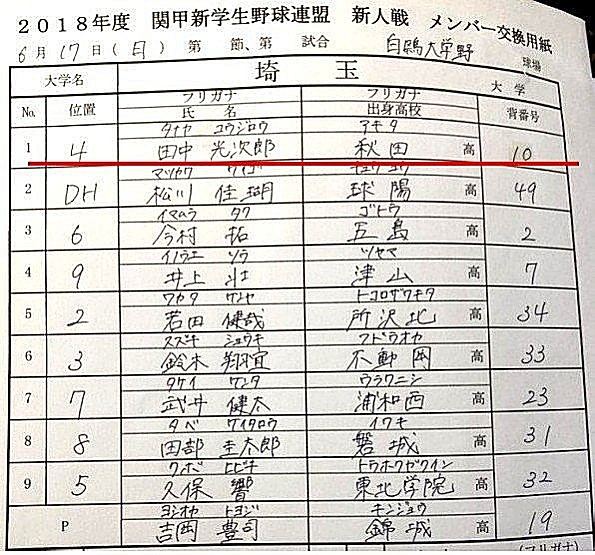 2018年度 関甲新学生野球連盟 新人戦 メンバー交換用紙
6月17日(日) 第 節、第 試合 白鷗大学野 球場
大学名 埼玉 大学
No. 位置 フリガナ 氏名 フリガナ 出身高校 背番号
タナカ ユウジロウ アキタ
1 4 田中 光次郎 秋田 高 10
マツカワ ケイゴ キュウヨウ
2 DH 松川 佳瑚 球陽 高 49
イマムラ タク ゴトウ
3 6 今村 拓 五島 高 2
イノウエ ソウ ツヤマ
4 9 井上 壮 津山 高 7
ワカタ ケンヤ トコロザワキタ
5 2 若田 健哉 所沢北 高 34
スズキ ショウキ フドウオカ
6 3 鈴木 翔宜 不動岡 高 33
タケイ ケンタ ウラワニシ
7 7 武井 健太 浦和西 高 23
タベ ケイタロウ イワキ
8 8 田部 圭太郎 磐城 高 31
クボ ヒビキ トウホクガクイン
9 5 久保 響 東北学院 高 32
ヨシオカ トヨジ キンジョウ
P 吉岡 豊司 錦城 高 19